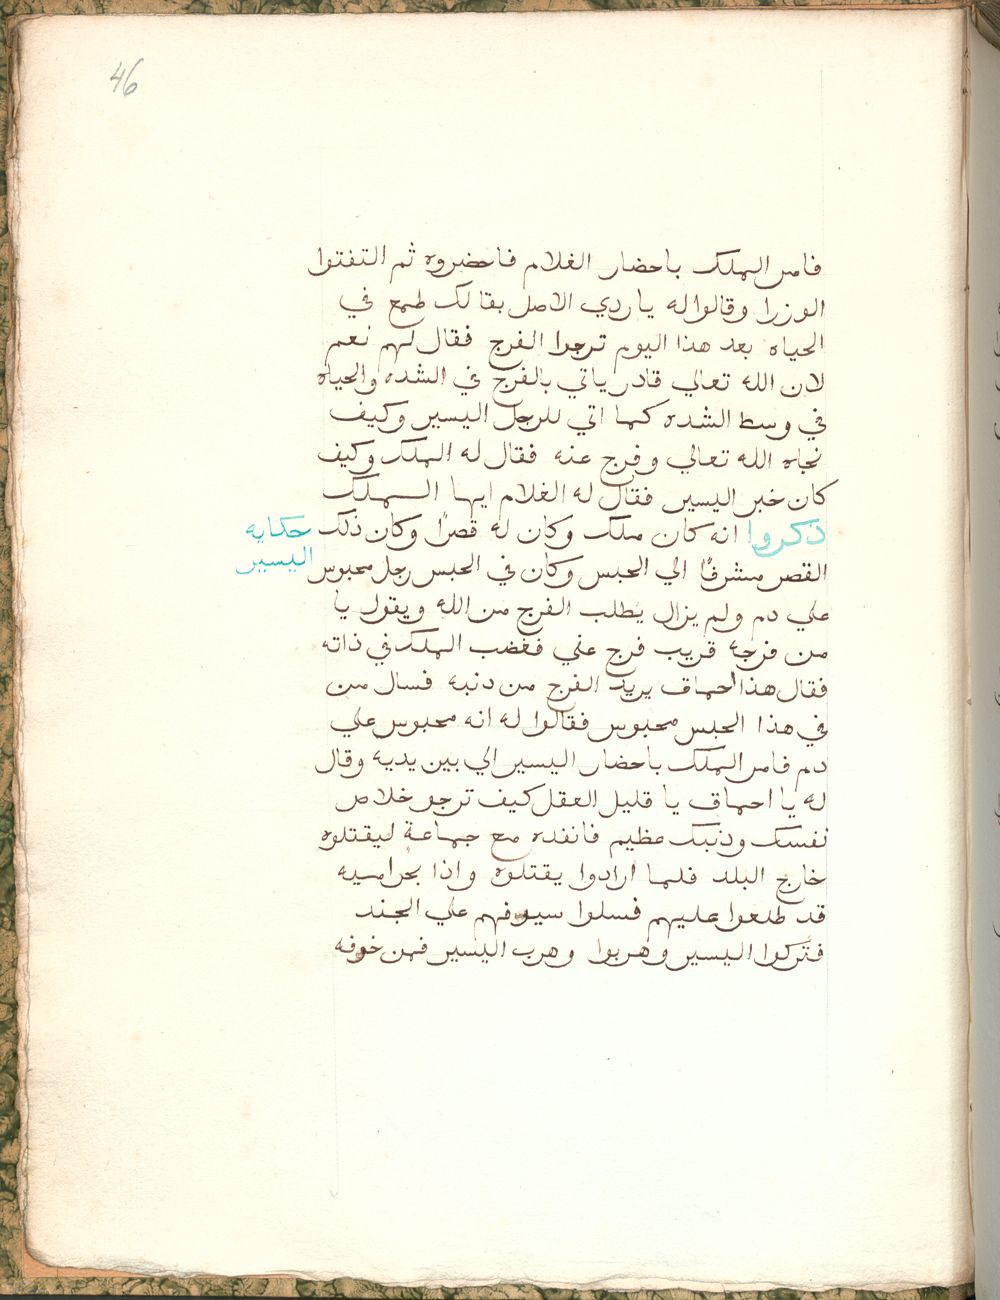 46
فامر الملك باحضار الغلام فاحضروه ثم التفتوا
الوزرا وقالوا له يا ردي الاصل بقا لك طمع في
الحياه بعد هذا اليوم ترجوا الفرج فقال لهم نعم
لان الله تعالي قادر ياتي بالفرج في الشده والحياه
في وسط الشده كما اتي للرجل اليسير وكيف
نجاه الله تعالي وفرج عنه فقال له الملك وكيف
كان خبر اليسير فقال له الغلام ايها الملك
ذكروا انه كان ملك وكان له قصرًا وكان ذلك
حكايه
اليسير
القصر مشرفًا الي الحبس وكان في الحبس رجل محبوس
علي دم ولم يزال يطلب الفرج من الله ويقول يا
من فرجه قريب فرج عني فغضب الملك في ذاته
فقال هذا احماق يريد الفرج من دنبه فسال من
في هذا الحبس محبوس فقالوا له انه محبوس علي
دم فامر الملك باحضار اليسير الي بين يديه وقال
له يا احماق يا قليل العقل كيف ترجو خلاص
نفسك وذنبك عظيم فانفده مع جماعة ليقتلوه
خارج البلد فلما ارادوا يقتلوه واذا بحراميه
قد طلعوا عليهم فسلوا سيوفهم علي الجند
فتركوا اليسير وهربوا وهرب اليسير فمن خوفه